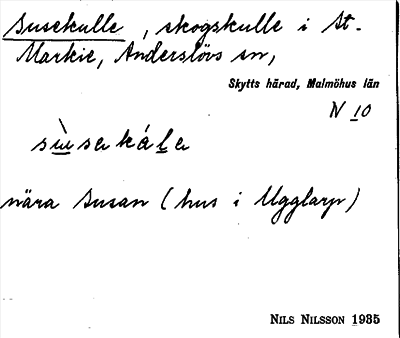 Susekulle, skogskulle i St.
Markie, Anderslövs sn,
Skytts härad, Malmöhus län
N 10
nära Susan (hus i Ugglarp)
NILS NILSSON 1935